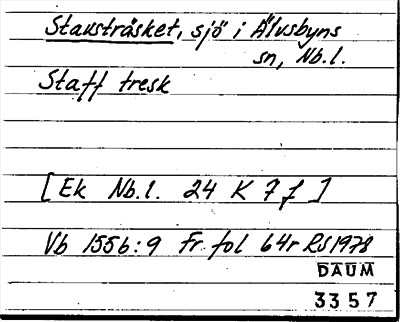 Stavsträsket, sjö i Älvsbyns
sn, Nb.l.
Staff tresk
[Ek Nb.l. 24 K 7 f ]
Vb 1556:9 Fr. fol 64r RS 1978
DAUM
3357